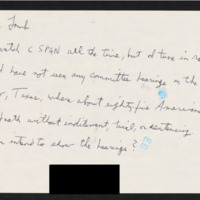 Lamb
watch C SPAN all the time, but I tune in reg
have not seen any committee hearings on the
, Texas, where about eighty-five Americans
death without indictment, trial, or sentencing
intend to show the hearings?